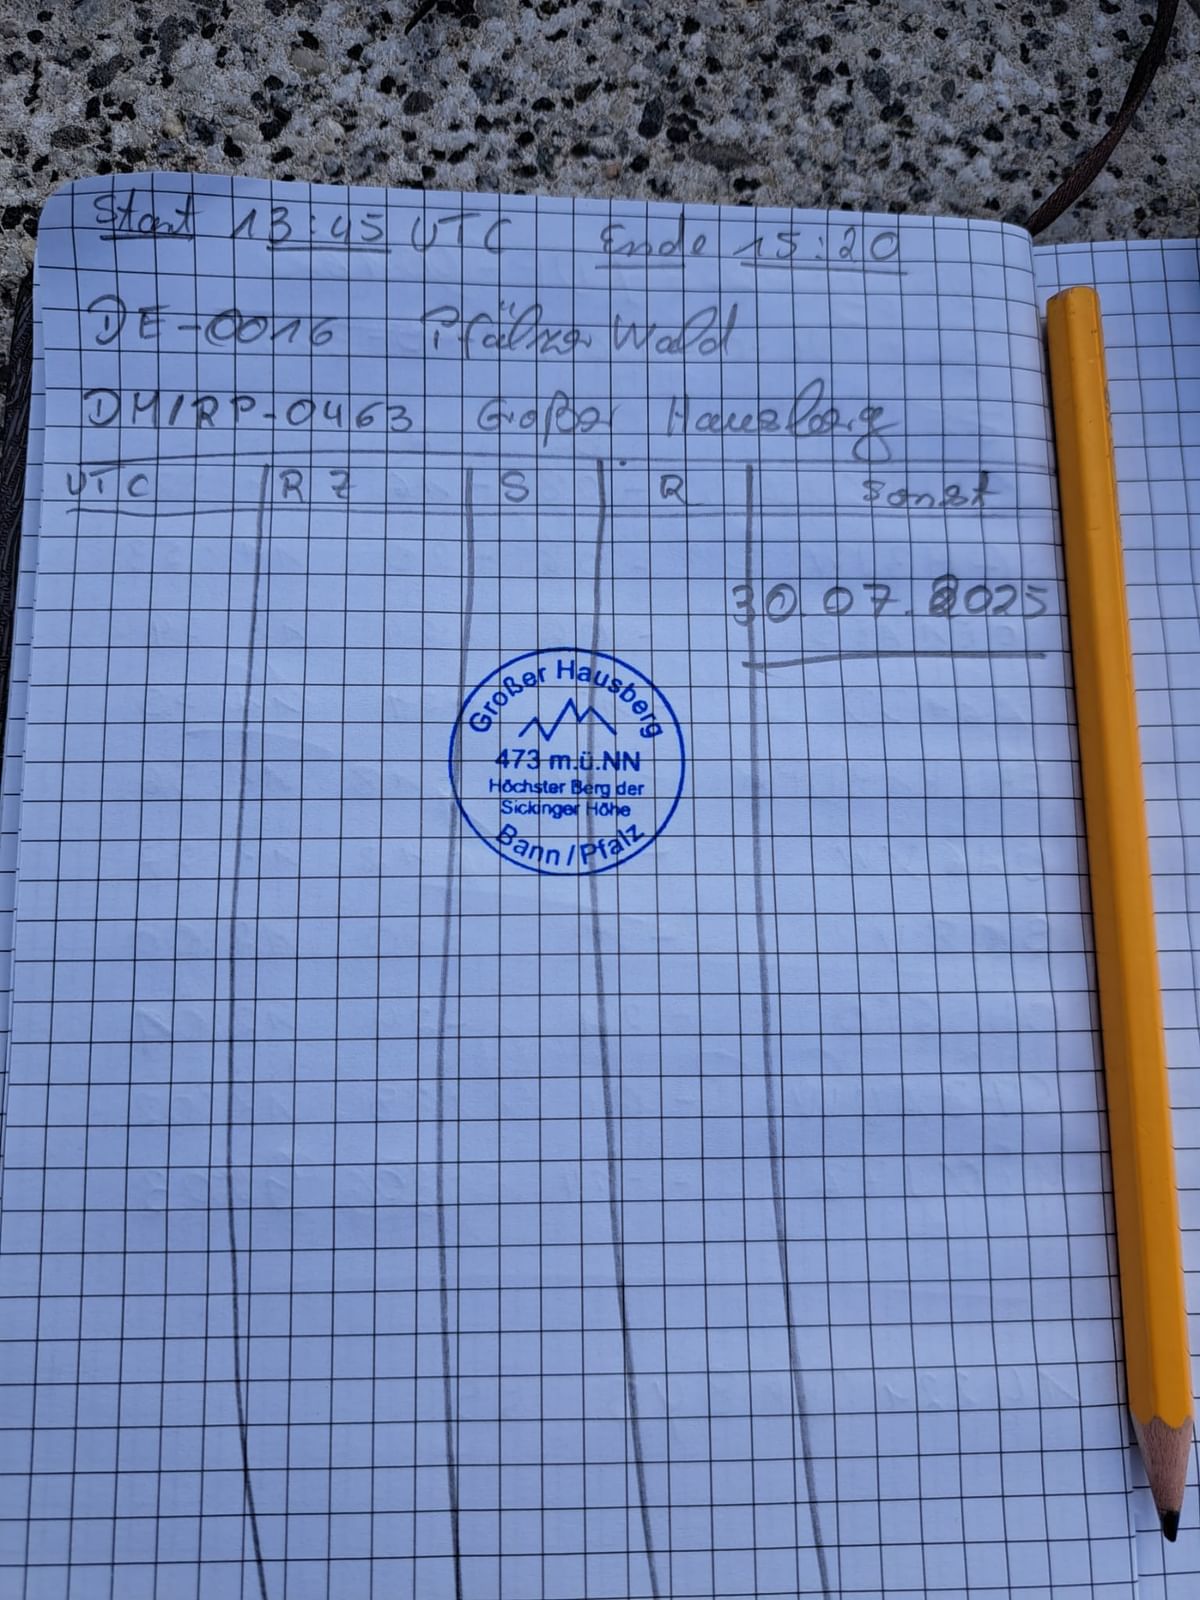 Start 13:45 UTC Ende 15:20
DE-0016 Pfälzer Wald
DM/RP-0463 Großer Hausberg
UTC RZ S R Sonst
30.07.2025
Großer Hausberg
473 m.ü.NN
Höchster Berg der
Sickinger Höhe
Bann / Pfalz